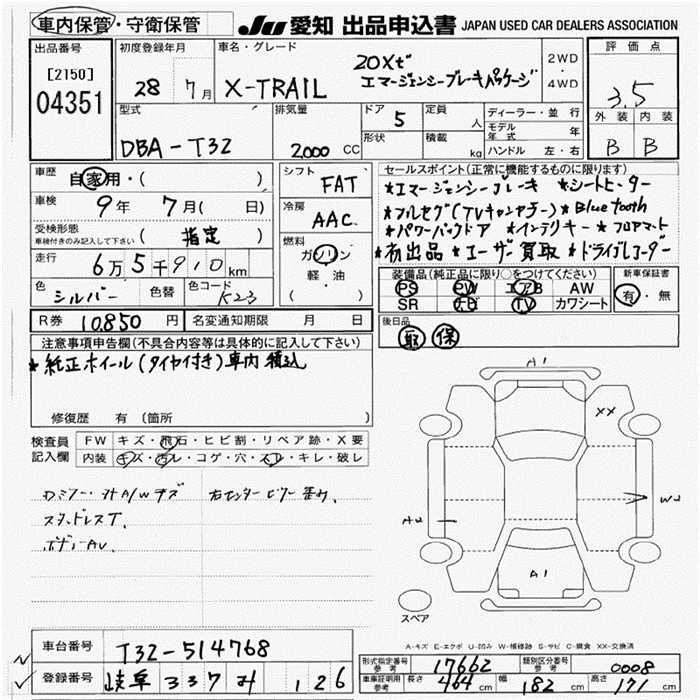 車内保管・守衛保管
JU 愛知 出品申込書 JAPAN USED CAR DEALERS ASSOCIATION
出品番号
[2150]
04351
初度登録年月
28 7月
車名・グレード
X-TRAIL
20Xｾﾞ
エマージェンシーブレーキパッケージ
2WD
・
4WD
評価点
3.5
外装 内装
B B
型式
DBA-T32
排気量
2,000 CC
ドア 5
形状
定員 人
積載 kg
ディーラー・並行
モデル年式 年
ハンドル 左・右
車歴 自家用・( )
車検 9年 7月( 日)
受検形態
車検付きのみ記入して下さい
(指定)
走行 6万5千910km
色 シルバー 色替 色コード K23
シフト FAT
冷房 AAC
燃料
ガソリン
軽・油
( )
セールスポイント(正常に機能するものに限ります)
*エマージェンシーブレーキ *シートヒーター
*フルセグ(TVキャンセラー)*Bluetooth
*パワーバックドア *インテリキー *フロアマット
*初出品 *ユーザー買取 *ドライブレコーダー
装備品(純正品に限り○をつけてください)
PS PW エアB AW
SR ナビ TV カワシート
新車保証書
有・無
R券 10,850円 名変通知期限 月 日
後日品
取 保
注意事項申告欄(不具合内容等は具体的に記入して下さい)
*純正ホイール(タイヤ付き)車内積込
修復歴 有 (箇所
検査員
記入欄
FW キズ・飛石・ヒビ割・リペア跡・X要
内装 キズ・汚レ・コゲ・穴・スレ・キレ・破レ
スタッドレスT.
ボディーAU.
A1
XX
AU
WU
A1
スペア
A-キズ E-エクボ U-凹み W-補修跡 S-サビ C-腐食 XX-交換済
車台番号 T32-514768
登録番号 岐阜 337 み 126
形式指定番号
参考
17662
類別区分番号
参考
0008
車庫証明用
参考
長さ 464cm 幅 182cm 高さ 171cm